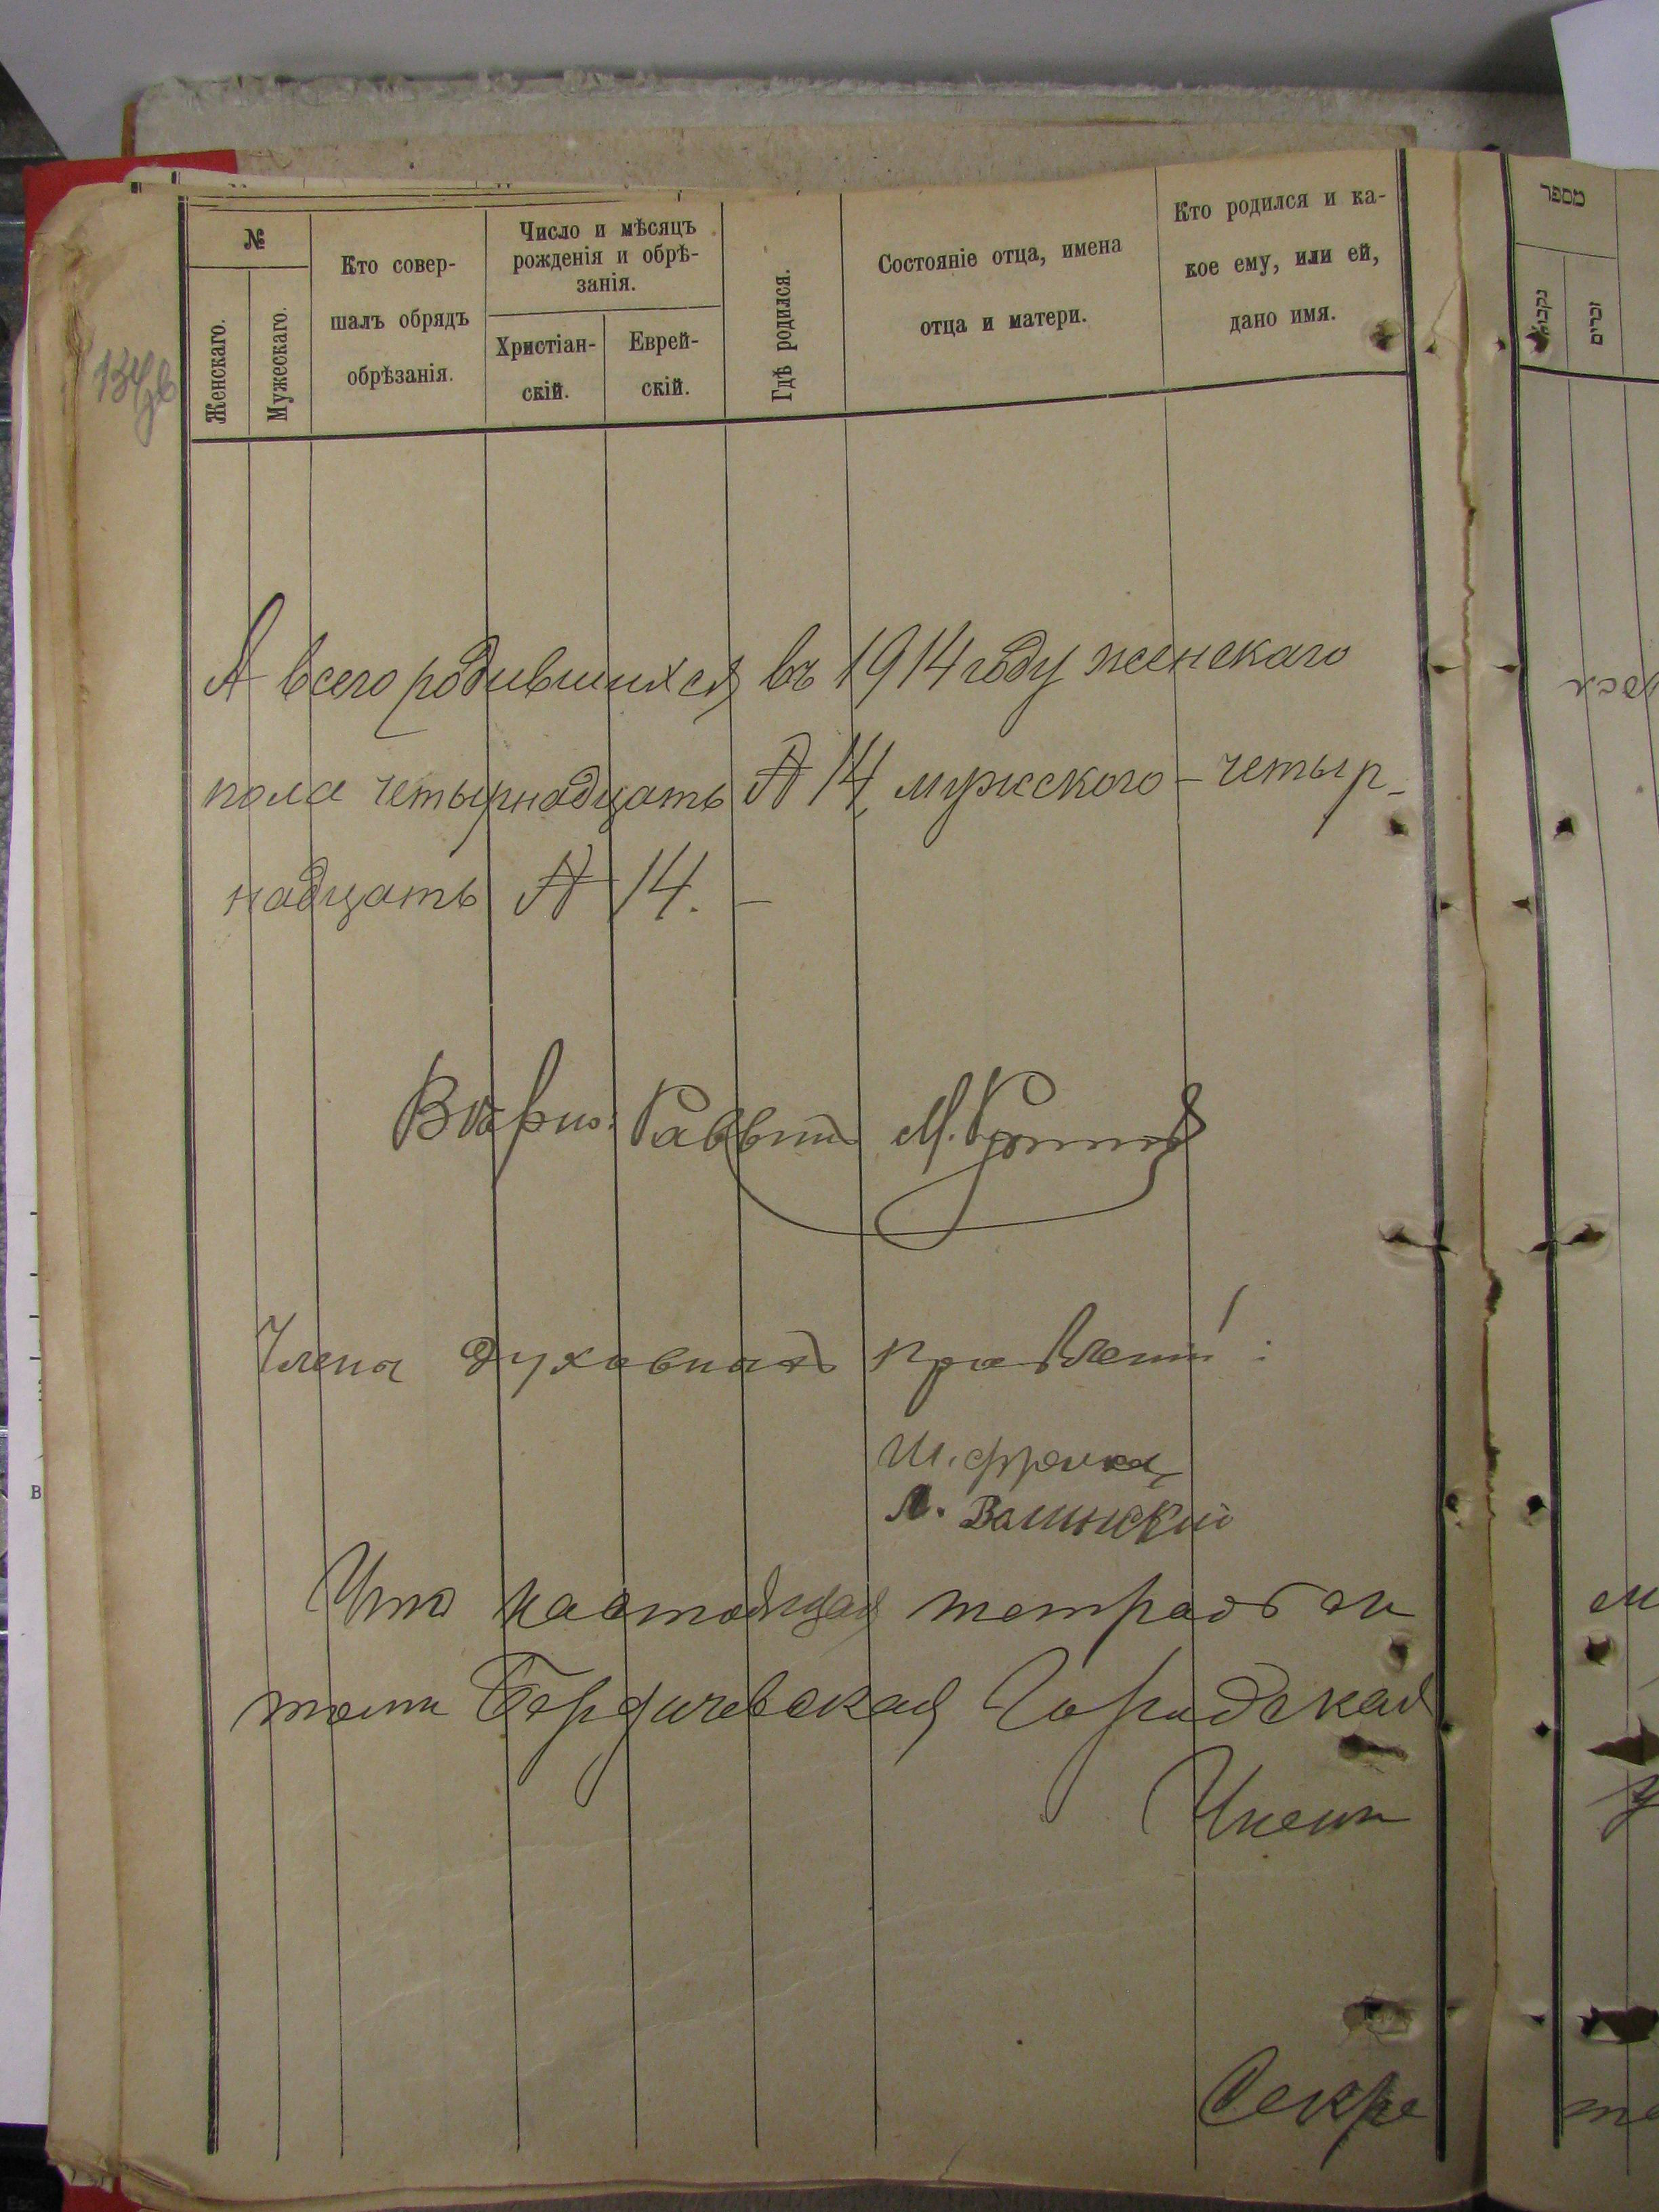 №
Женскаго.
Мужескаго.
Кто совер-
шалъ обрядъ
обрѣзанія.
Число и мѣсяцъ
рожденія и обрѣ-
занія.
Христіан-
скій.
Еврей-
скій.
Гдѣ родился.
Состояніе отца, имена
отца и матери.
Кто родился и ка-
кое ему, или ей,
дано имя.
А всего родившихся въ 1914 году женскаго
пола четырнадцать № 14, мужского – четыр-
надцать № 14. –
Раввинъ М.
Члены духовнаго правленія:
Ш. Френкель
Л. Валинский
Что настоящая тетрадь
Бердичевская Городская
Члены
Секре
מספר
נקבות
זכרים